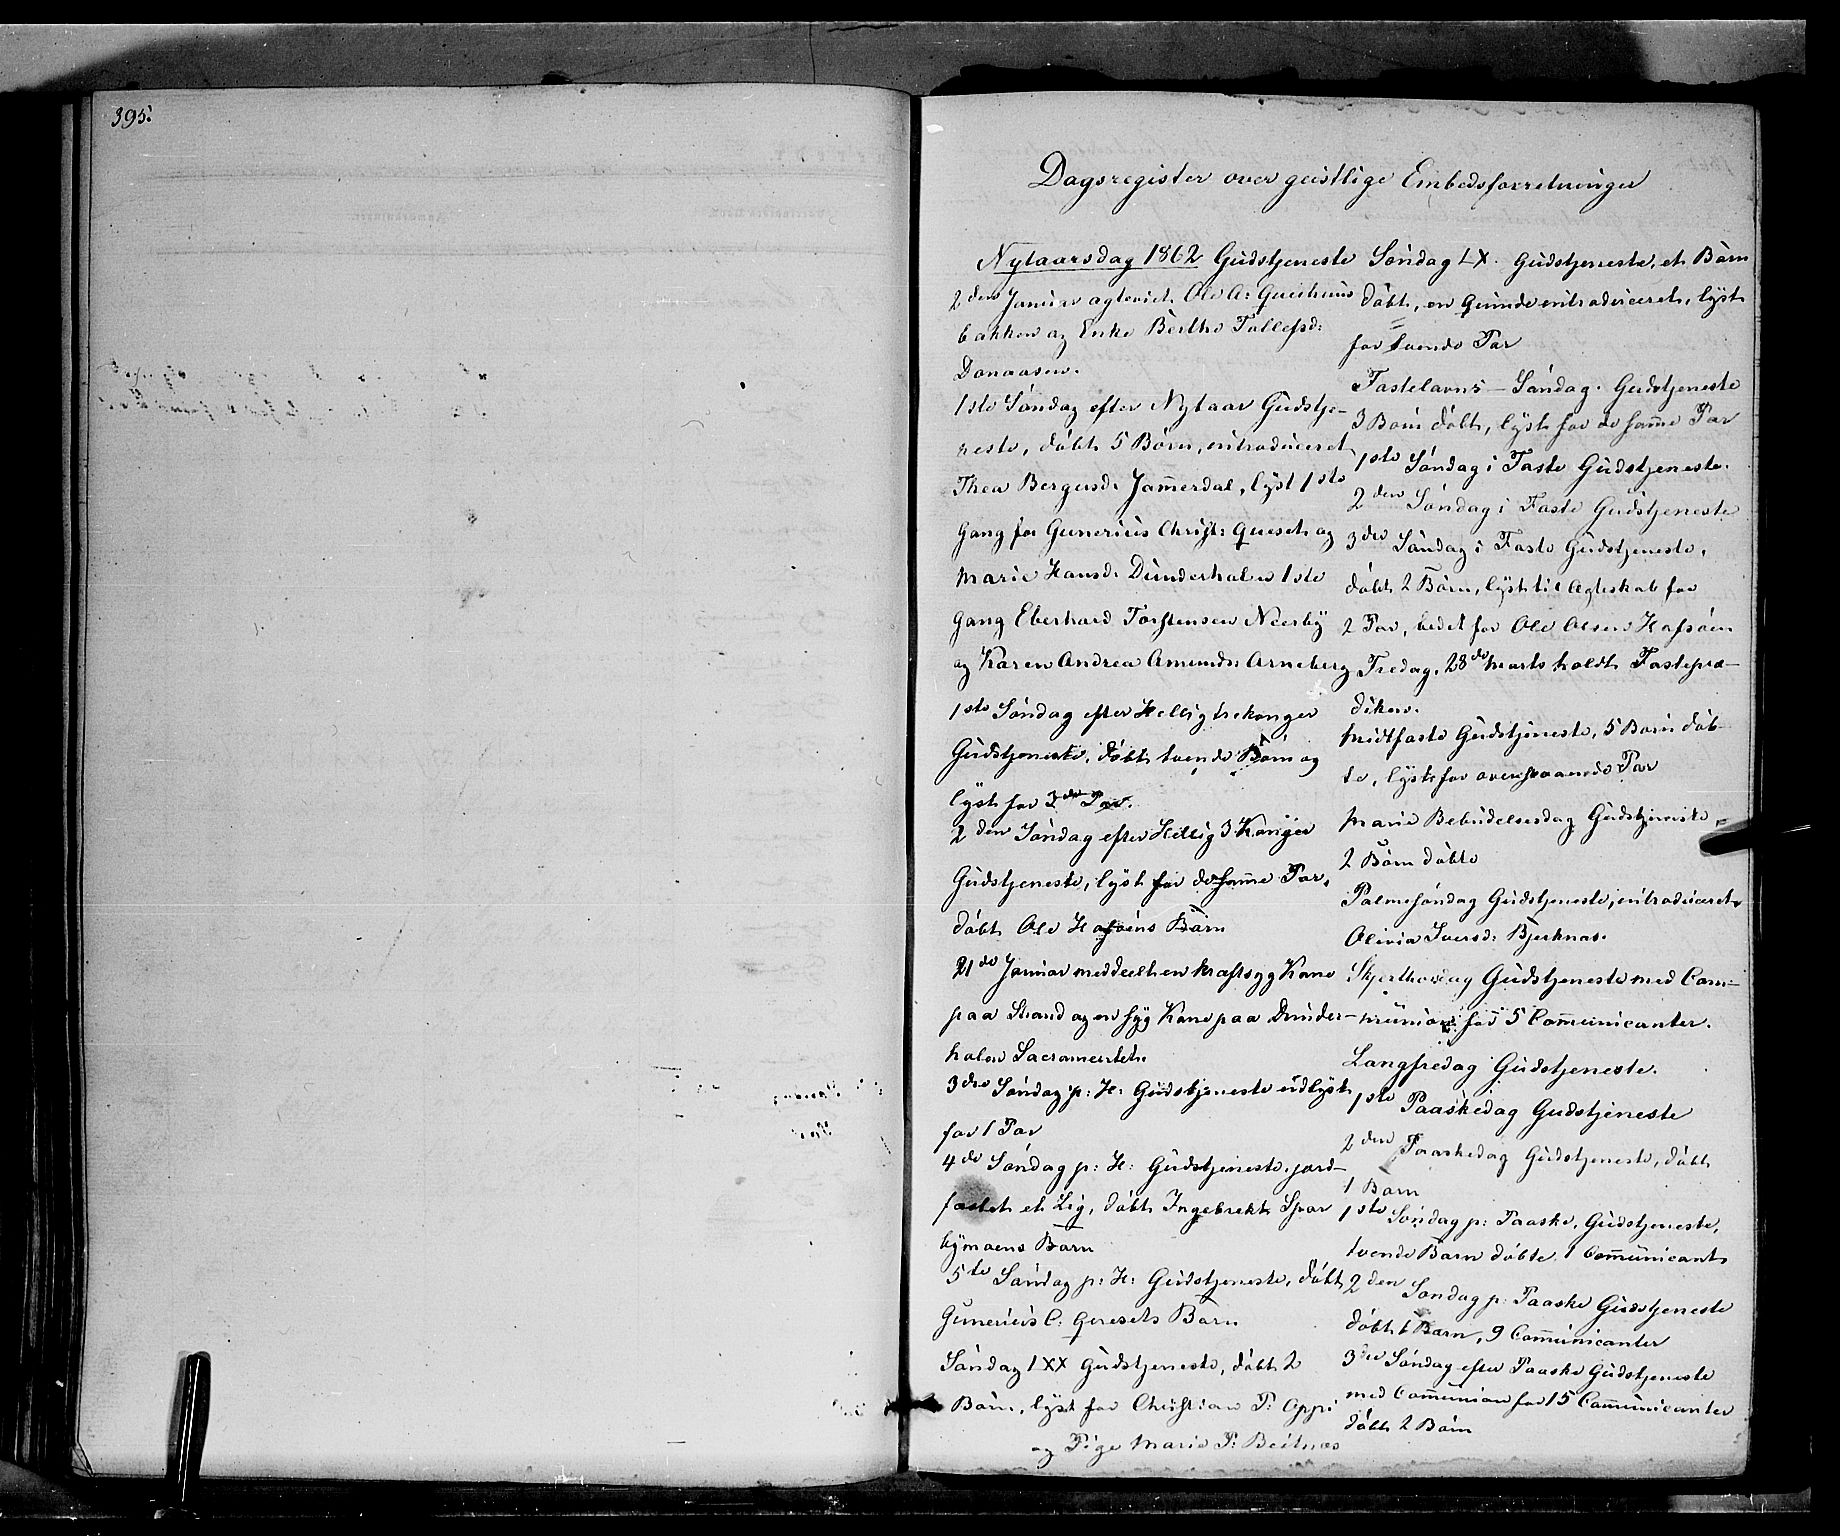 395.
Dagsregister over geistlige Embedsforretninger
Nytaarsdag 1862 Gudstjeneste
2den Januar agteviet Ole A:
bakken og Enke Berthe Tollefsd:
Donaasen.
1ste Søndag efter Nytaar Gudstje-
neste, døbt 5 Børn, introduceret
Thea Bergersd. Jam̄erdal, lyst 1ste
Gang for Gunerius Christ: Queset og
Marie Hansd. Dunderholen 1ste
Gang Eberhard Torstensen Neerby
og Karen Andrea Amunds: Arneberg
1ste Søndag efter Hellig trekonger
Gudstjeneste, døbt tvende Børn og
lyst for 3de Par.
2den Søndag efter Hellig 3 Konger
Gudstjeneste, lyst for de sam̄e Par,
døbt Ole Hafsøens Barn
21de Januar meddeelt en kraftsyg Kone
paa Strand og en syg Kone paa Dunder-
holen Sacramentet.
3die Søndag p: H: Gudstjeneste udlyst
for 1 Par
4de Søndag p: H: Gudstjeneste, jord-
fæstet et Lig, døbt Ingebrekt Spar
bymoens Barn
5te Søndag p: H: Gudstjeneste, døbt
Gunerius C: Qvesets Barn
Søndag LXX Gudstjeneste, døbt 2
Børn, lyst for Christian P: Oppi
og Pige Marie P: Beitnes
Søndag LX. Gudstjeneste, et Barn
døbt, en Quinde introduceret, lyst
for tvende Par
Fastelavns-Søndag. Gudstjeneste
3 Børn døbt, lyst for de sam̄e Par
1ste Søndag i Faste Gudstjeneste.
2den Søndag i Faste Gudstjeneste
3die Søndag i Faste Gudstjeneste,
døbt 2 Børn, lyst til Ægteskab for
2 Par, bedet for Ole Olsen Hafsøen
Fredag, 28de Marts holdt Fastepræ-
diken.
Midtfaste Gudstjeneste, 5 Børn døb-
te, lyst for ovenstaaende Par
Marie Bebudelsesdag Gudstjeneste,
2 Børn døbte
Palmesøndag Gudstjeneste, introduceret
Olivia Iversd: Bjerknæs.
Skjerthorsdag Gudstjeneste med Com-
munion for 5 Com̄unicanter.
Langfredag Gudstjeneste.
1ste Paaskedag Gudstjeneste
2den Paaskedag Gudstjeneste, døbt
1 Barn
1ste Søndag p: Paaske, Gudstjeneste,
tvende Børn døbte. 1 Com̄unicant
2den Søndag p. Paaske Gudstjeneste
døbt 1 Barn, 9 Com̄unicanter
3die Søndag efter Paaske Gudstjeneste
med Com̄union for 15 Com̄unicanter
døbt 2 Børn